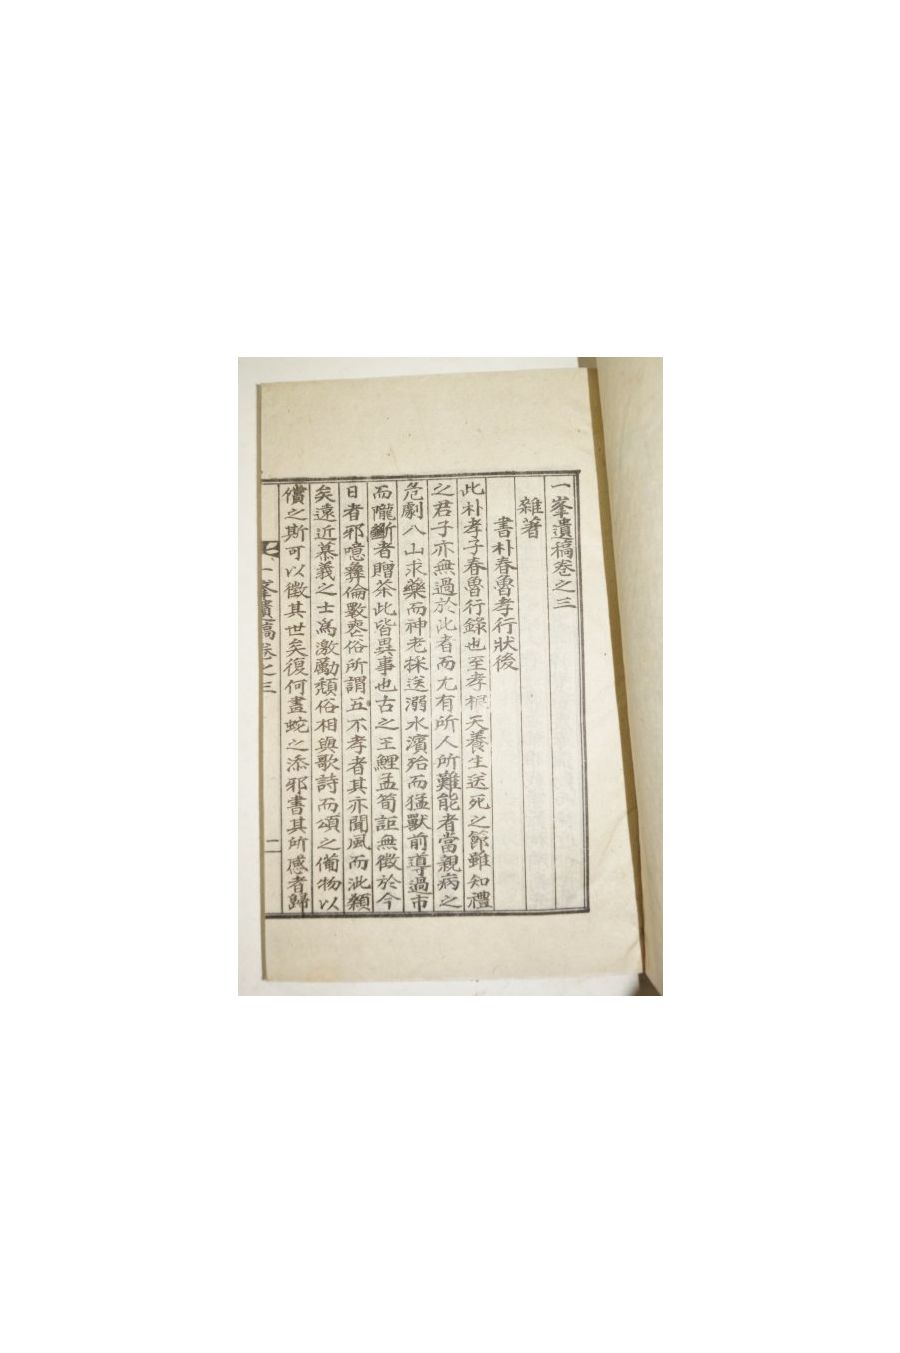 一峯遺稿卷之三
雜著
書朴春魯孝行狀後
此朴孝子春魯行錄也至孝根天養生送死之節雖知禮
之君子亦無過於此者而尤有所人所難能者當親病之
危劇入山求藥而神老採送溺水濱殆而猛獸前導過市
而隴斷者贈茶此皆異事也古之王鯉孟筍詎無徵於今
日者邪噫彛倫斁壺俗所謂五不孝者其亦聞風而泚顙
矣遠近慕義之士爲激勵頹俗相與歌詩而頌之備物以
償之斯可以徵其世矣復何畫蛇之添邪書其所感者歸
一峯遺稿卷之三